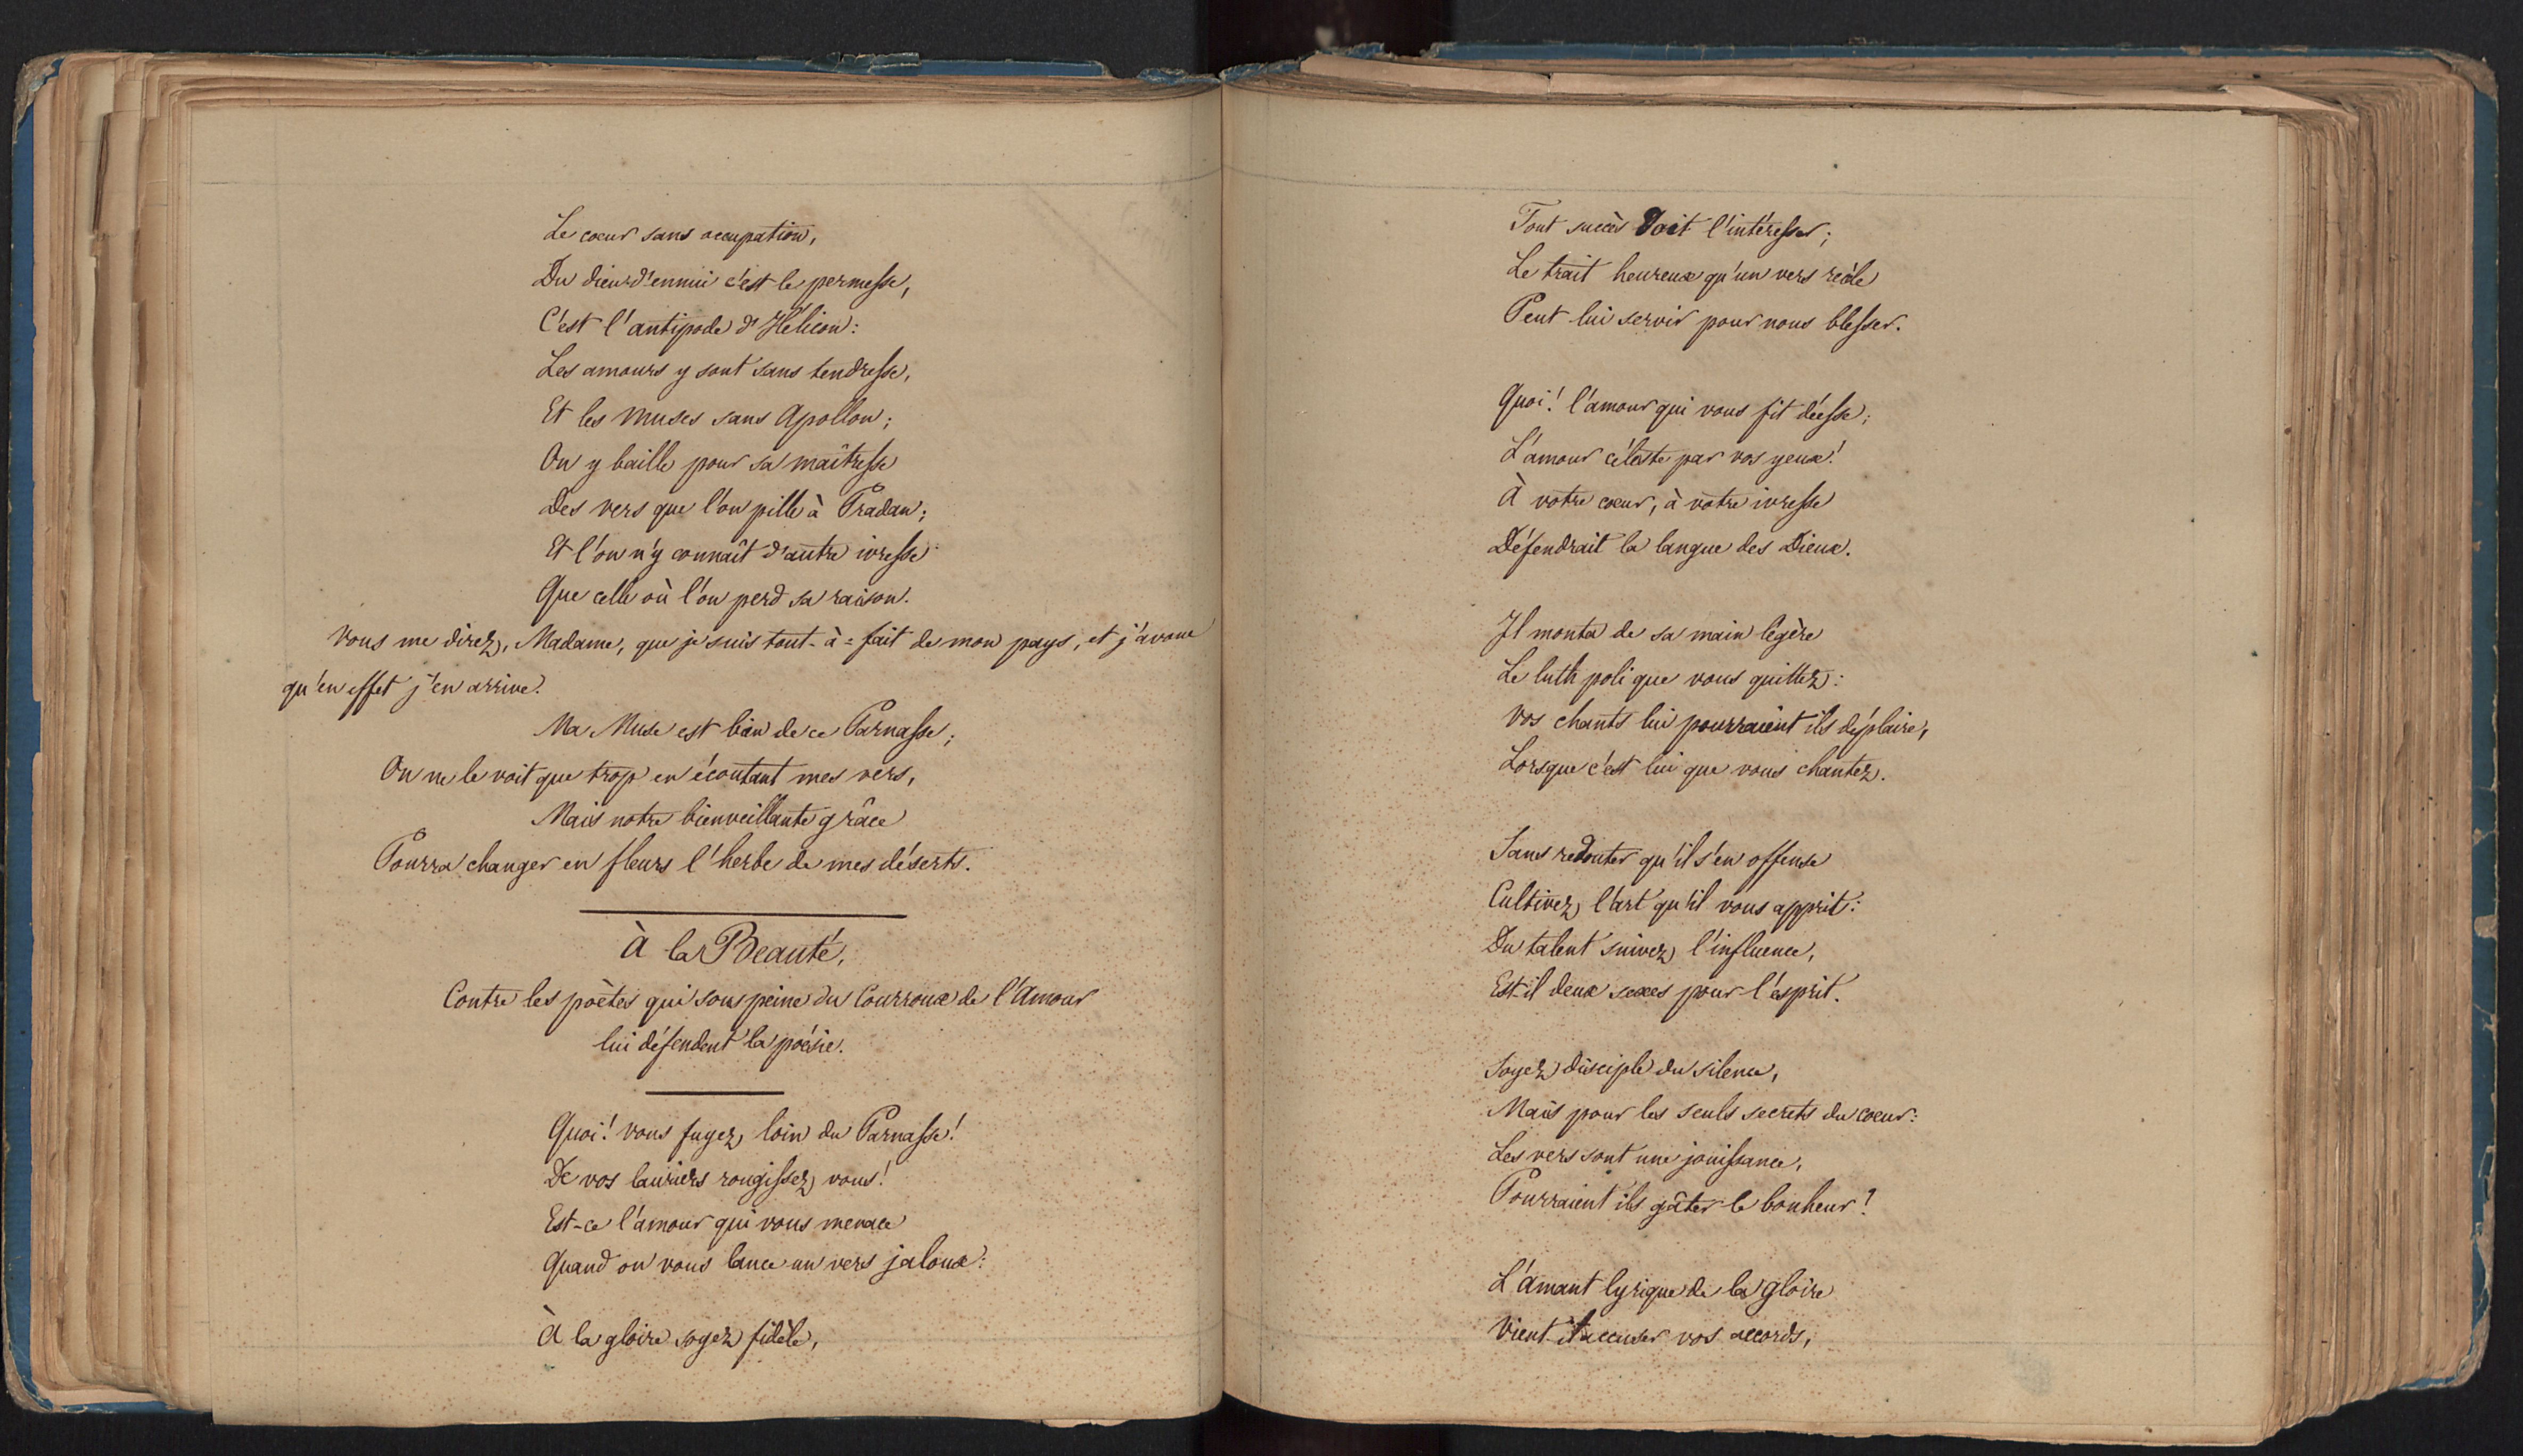 Le cœur sans occupation,
Du dieu d'ennui c'est le permesse,
C'est l'antipode d'Hélicon:
Les amours y sont sans tendresse,
Et les Muses sans Apollon;
On y baille pour sa maîtresse
Des vers que l'on pille à Pradon;
Et l'on n'y connaît d'autre ivresse
Que celle où l'on perd sa raison.
Vous me direz, Madame, que je suis tout-à-fait de mon pays, et j'avoue
qu'en effet j'en arrive.
Ma Muse est bien de ce Parnasse;
On ne le voit que trop en écoutant mes vers,
Mais notre bienveillante grâce
Pourra changer en fleurs l'herbe de mes déserts.
à la Beauté,
Contre les poètes qui sous peine du Courroux de l'Amour
lui défendent la poésie.
Quoi! vous fuyez loin du Parnasse!
De vos lauriers rougissez vous!
Est-ce l'amour qui vous menace
Quand on vous lance un vers jaloux:
À la gloire soyez fidèle,
Tout succès doit l'intéresser;
Le trait heureux qu'un vers recèle
Peut lui servir pour nous blesser.
Quoi! l'amour qui vous fit déesse;
L'amour céleste par vos yeux!
À votre cœur, à votre ivresse
Défendrait la langue des Dieux.
Il monta de sa main légère
Le luth poli que vous quittez:
Vos chants lui pourraient ils déplaire,
Lorsque c'est lui que vous chantez.
Sans redouter qu'il s'en offense
Cultivez l'art qu'il vous apprit:
Du talent suivez l'influence,
Est-il deux sexes pour l'esprit.
Soyez disciple du silence,
Mais pour les seuls secrets du cœur:
Les vers sont une jouissance,
Pourraient ils gâter le bonheur?
L'amant lyrique de la gloire
Vient il accuser vos accords,